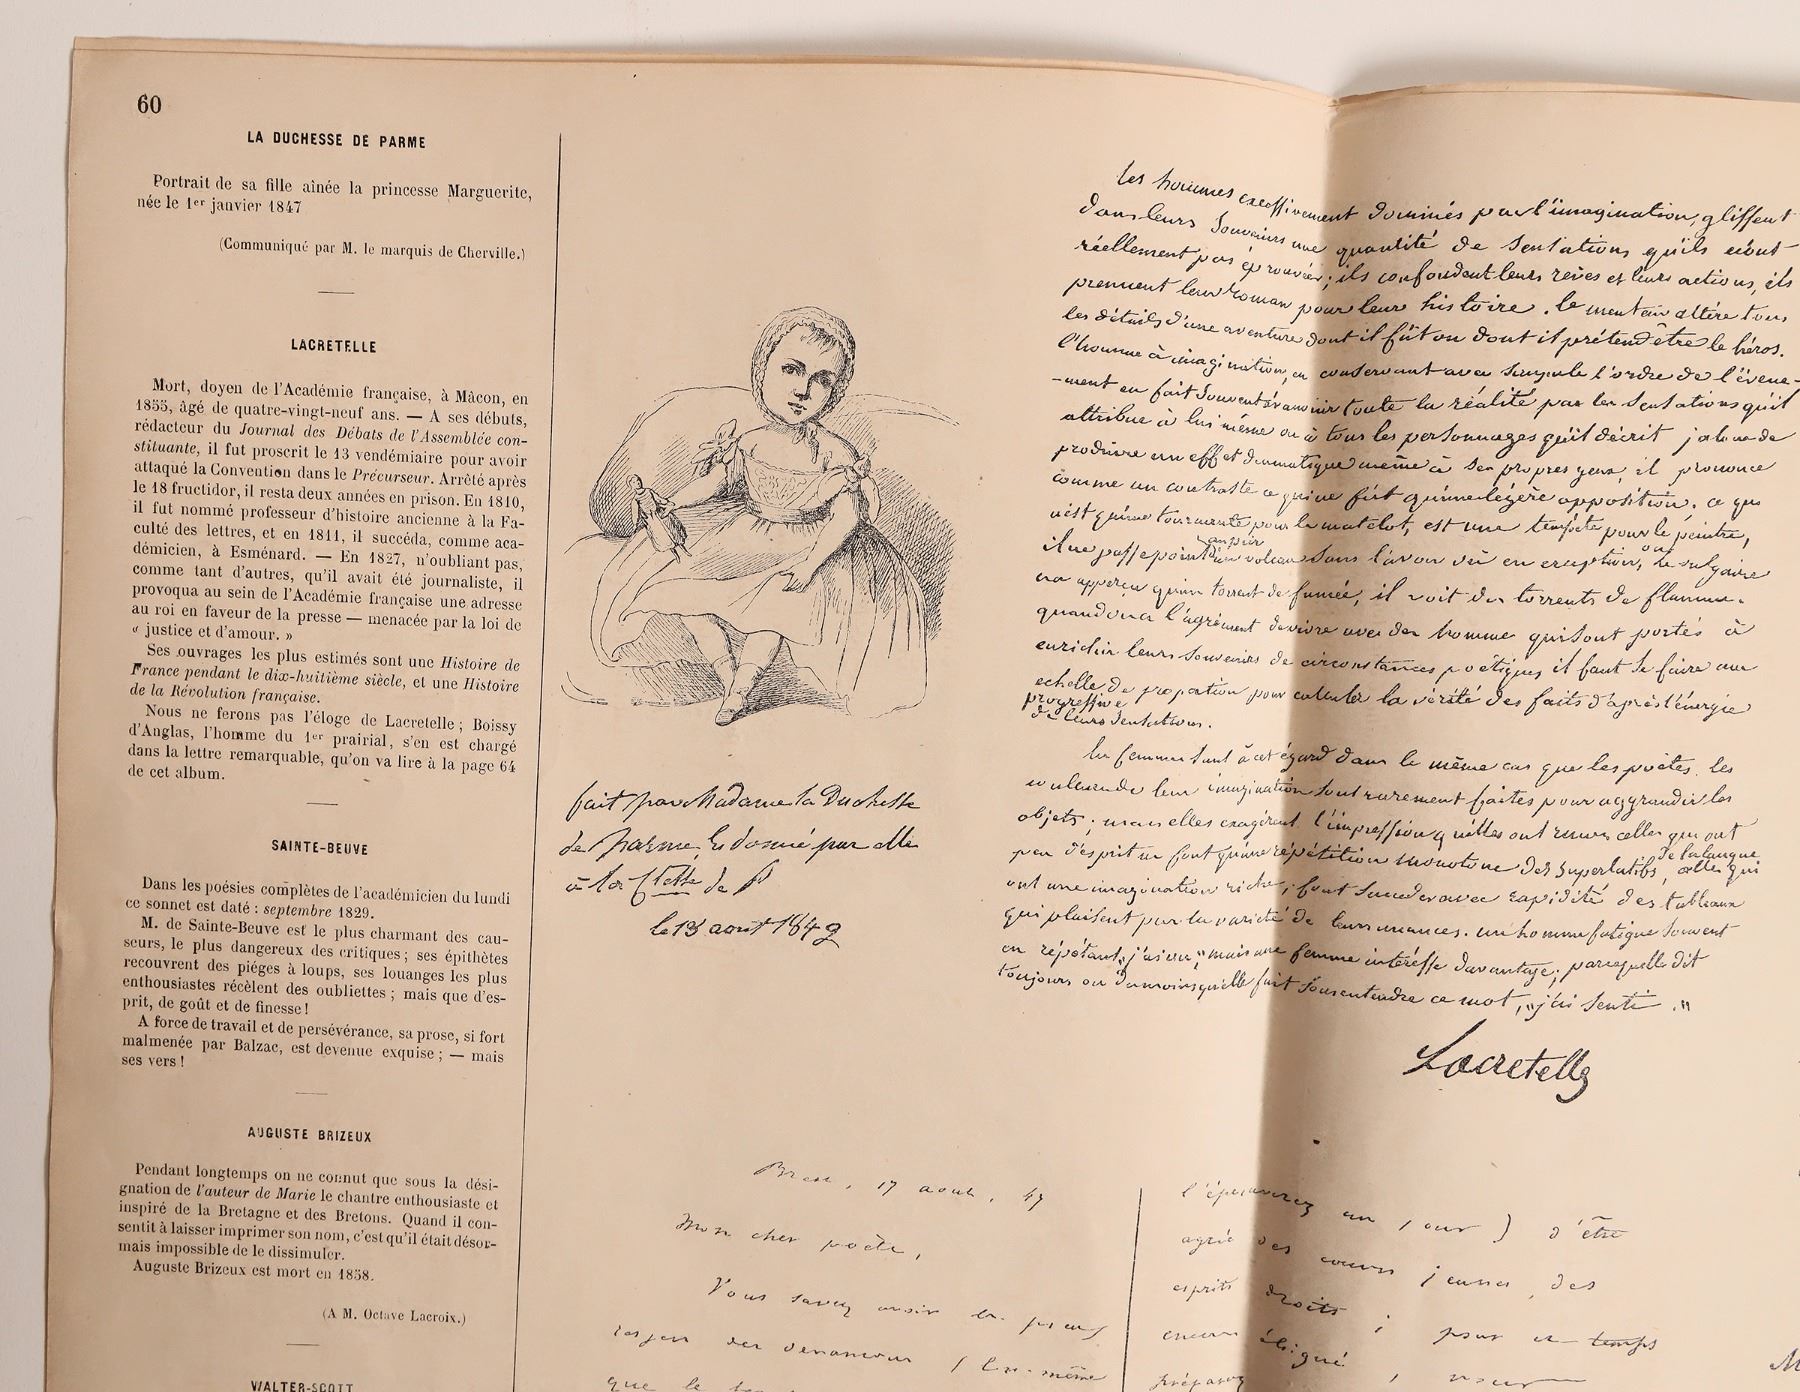 60
LA DUCHESSE DE PARME
Portrait de sa fille aînée la princesse Marguerite,
née le 1er janvier 1847
(Communiqué par M. le marquis de Cherville.)
LACRETELLE
Mort, doyen de l'Académie française, à Mâcon, en
1855, âgé de quatre-vingt-neuf ans. — A ses débuts,
rédacteur du Journal des Débats de l'Assemblée con-
stituante, il fut proscrit le 13 vendémiaire pour avoir
attaqué la Convention dans le Précurseur. Arrêté après
le 18 fructidor, il resta deux années en prison. En 1810,
il fut nommé professeur d'histoire ancienne à la Fa-
culté des lettres, et en 1811, il succéda, comme aca-
démicien, à Esménard. — En 1827, n'oubliant pas,
comme tant d'autres, qu'il avait été journaliste, il
provoqua au sein de l'Académie française une adresse
au roi en faveur de la presse — menacée par la loi de
« justice et d'amour. »
Ses ouvrages les plus estimés sont une Histoire de
France pendant le dix-huitième siècle, et une Histoire
de la Révolution française.
Nous ne ferons pas l'éloge de Lacretelle ; Boissy
d'Anglas, l'homme du 1er prairial, s'en est chargé
dans la lettre remarquable, qu'on va lire à la page 64
de cet album.
SAINTE-BEUVE
Dans les poésies complètes de l'académicien du lundi
ce sonnet est daté : septembre 1829.
M. de Sainte-Beuve est le plus charmant des cau-
seurs, le plus dangereux des critiques ; ses épithètes
recouvrent des piéges à loups, ses louanges les plus
enthousiastes récèlent des oubliettes ; mais que d'es-
prit, de goût et de finesse !
A force de travail et de persévérance, sa prose, si fort
malmenée par Balzac, est devenue exquise ; — mais
ses vers !
AUGUSTE BRIZEUX
Pendant longtemps on ne connut que sous la dési-
gnation de l'auteur de Marie le chantre enthousiaste et
inspiré de la Bretagne et des Bretons. Quand il con-
sentit à laisser imprimer son nom, c'est qu'il était désor-
mais impossible de le dissimuler.
Auguste Brizeux est mort en 1858.
(A M. Octave Lacroix.)
WALTER-SCOTT
fait par Madame la Duchesse
de Parme, et donné par elle
à la Ctesse de P
le 13 août 1849
les hommes excessivement dominés par l'imagination, glissent
dans leurs souvenirs une quantité de sensations qu'ils n'ont
réellement pas éprouvées ; ils confondent leurs rêves et leurs actions, ils
prennent leur roman pour leur histoire. le menteur altère tous
les détails d'une aventure dont il fût ou dont il prétend être le héros.
l'homme à imagination, en conservant avec scrupule l'ordre de l'évene-
-ment en fait souvent évanouir toute la réalité par les sensations qu'il
attribue à lui même ou à tous les personnages qu'il décrit jaloux de
produire un effet dramatique même à ses propres yeux, il prononce
comme un contraste ce qui ne fût qu'une légère opposition. ce qui
n'est qu'une tourmente pour le matelot, est une tempête pour le peintre,
il ne passe point auprès d'un volcan sans l'avoir vû en eruption, où le vulgaire
n'a apperçu qu'un torrent de fumée, il voit des torrents de flamme.
quand on a l'agrément de vivre avec des hommes qui sont portés à
enrichir leurs souvenirs de circonstances poétiques il faut se faire une
echelle de proportion pour calculer la vérité des faits d'après l'énergie
progressive
de leurs sensations.
les femmes sont à cet égard dans le même cas que les poëtes. les
couleurs de leur imagination sont rarement faites pour aggrandir les
objets ; mais elles exagèrent l'impression qu'elles ont reçue. celles qui ont
peu d'esprit ne font qu'une répétition monotone des superlatifs de la langue, celles qui
ont une imagination riche, font succeder avec rapidité des tableaux
qui plaisent par la varieté de leurs nuances. un homme fatigue souvent
en répétant "j'ai vu," mais une femme intéresse davantage, parcequ'elle dit
toujours ou du moins qu'elle fait sousentendre ce mot, "j'ai senti."
Lacretelle
Brest, 17 août, 47
Mon cher poëte,
Vous savez avoir
que le
l'éprouverez un jour) d'être
agréé des cœurs jeunes, des
esprits droits ; pour un temps
encore éloigné
préparez